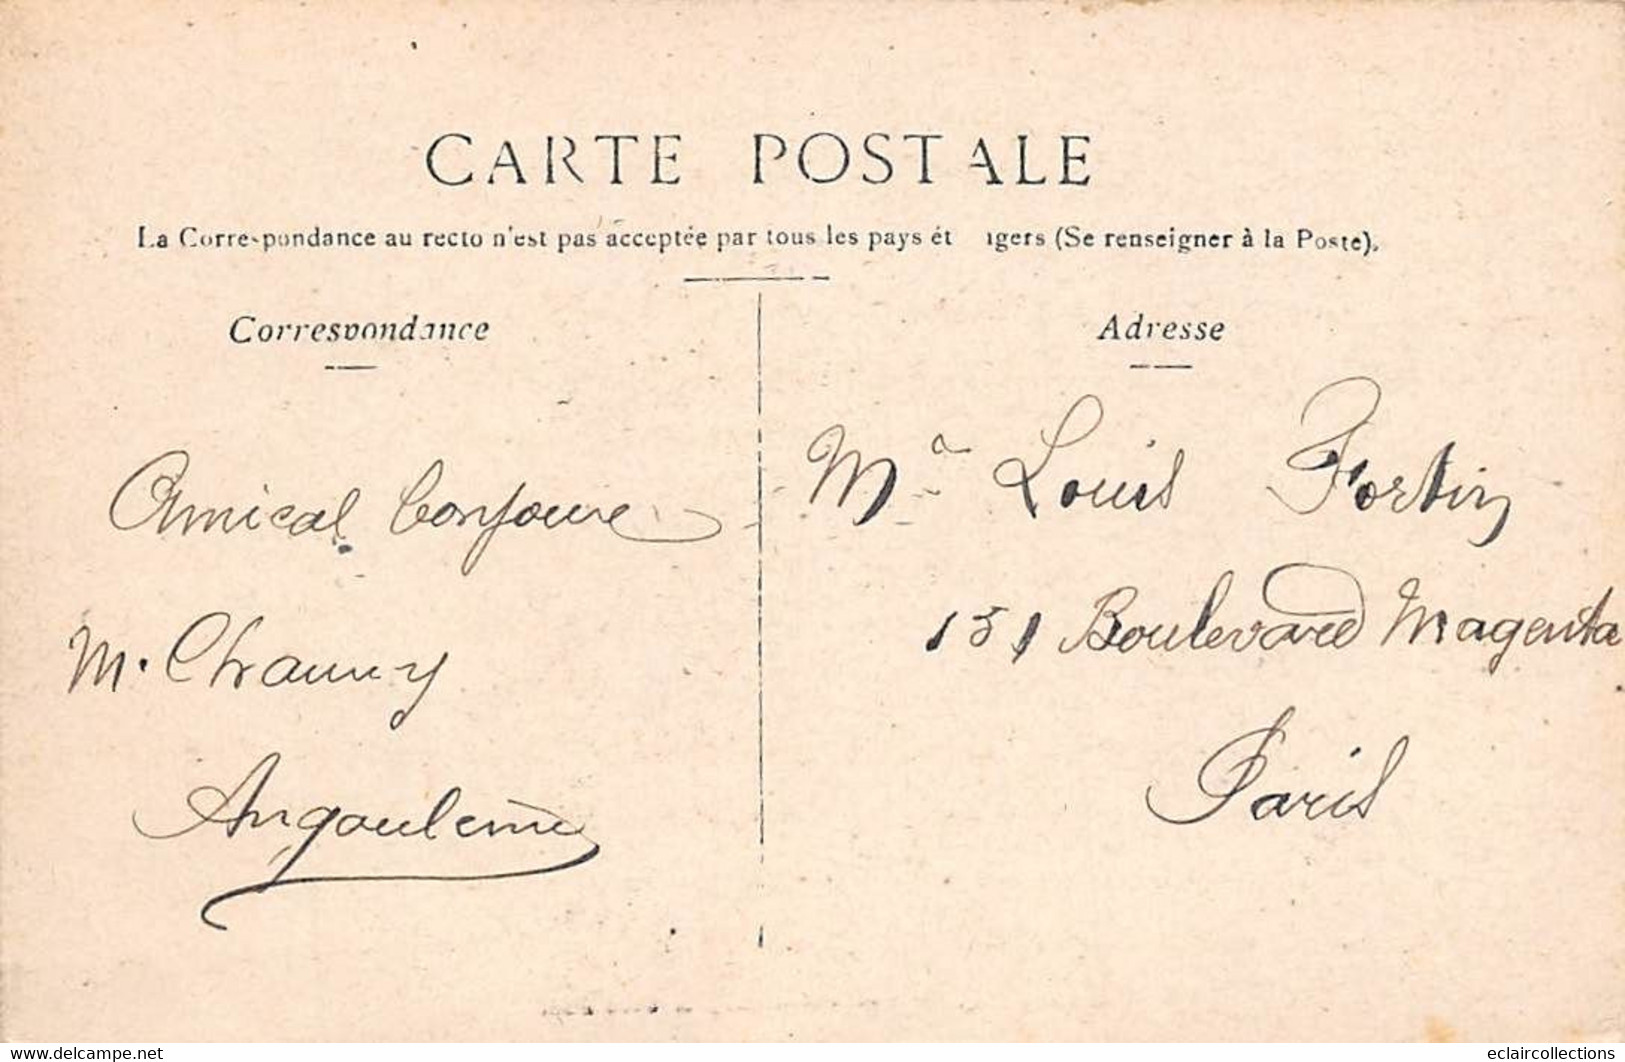 CARTE POSTALE
La Correspondance au recto n'est pas acceptée par tous les pays ét  igers (Se renseigner à la Poste).
Correspondance
Adresse
Amical bonjour
M. Chauny
Angoulême
Mr Louis Fortin
151 Boulevard Magenta
Paris
www.delcampe.net
eclaircollections